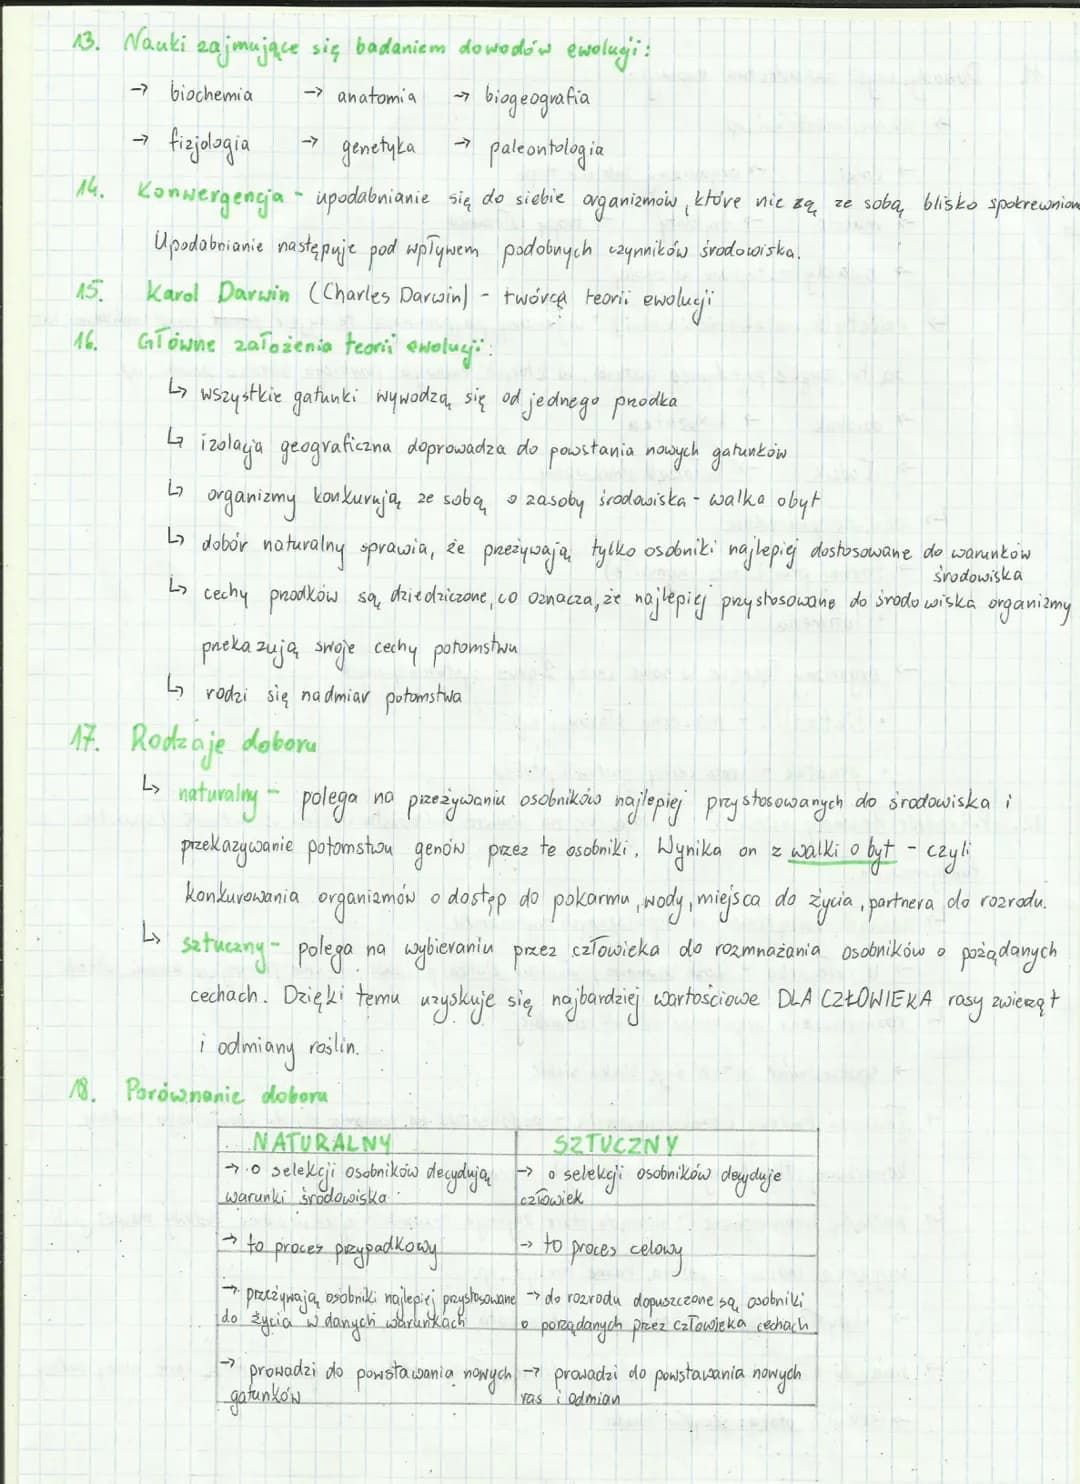 13. Nauki zajmujące się badaniem dowodów ewolucji:
→ biochemia → anatomia → biogeografia
→ fizjologia → genetyka → paleontologia
14. Konwergencja - upodabnianie się do siebie organizmów, które nie są ze sobą blisko spokrewnion
Upodabnianie następuje pod wpływem podobnych czynników środowiska.
15. Karol Darwin (Charles Darwin) - twórca teorii ewolucji
16. Główne założenia teorii ewolucji:
↳ wszystkie gatunki wywodzą się od jednego przodka
↳ izolacja geograficzna doprowadza do powstania nowych gatunków
↳ organizmy konkurują ze sobą o zasoby środowiska - walka o byt
↳ dobór naturalny sprawia, że przeżywają tylko osobniki najlepiej dostosowane do warunków
środowiska
↳ cechy przodków są dziedziczone, co oznacza, że najlepiej przystosowane do środowiska organizmy
przekazują swoje cechy potomstwu
↳ rodzi się nadmiar potomstwa
17. Rodzaje doboru
↳ naturalny - polega na przeżywaniu osobników najlepiej przystosowanych do środowiska i
przekazywanie potomstwu genów przez te osobniki. Wynika on z walki o byt - czyli
konkurowania organizmów o dostęp do pokarmu, wody, miejsca do życia, partnera do rozrodu.
↳ sztuczny - polega na wybieraniu przez człowieka do rozmnażania osobników o pożądanych
cechach. Dzięki temu uzyskuje się najbardziej wartościowe DLA CZŁOWIEKA rasy zwierząt
i odmiany roślin.
18. Porównanie doboru
NATURALNY SZTUCZNY
→ o selekcji osobników decydują → o selekcji osobników decyduje
warunki środowiska człowiek
→ to proces przypadkowy → to proces celowy
→ przeżywają osobniki najlepiej przystosowane → do rozrodu dopuszczone są osobniki
do życia w danych warunkach o porządanych przez człowieka cechach
→ prowadzi do powstawania nowych → prowadzi do powstawania nowych
gatunków ras i odmian